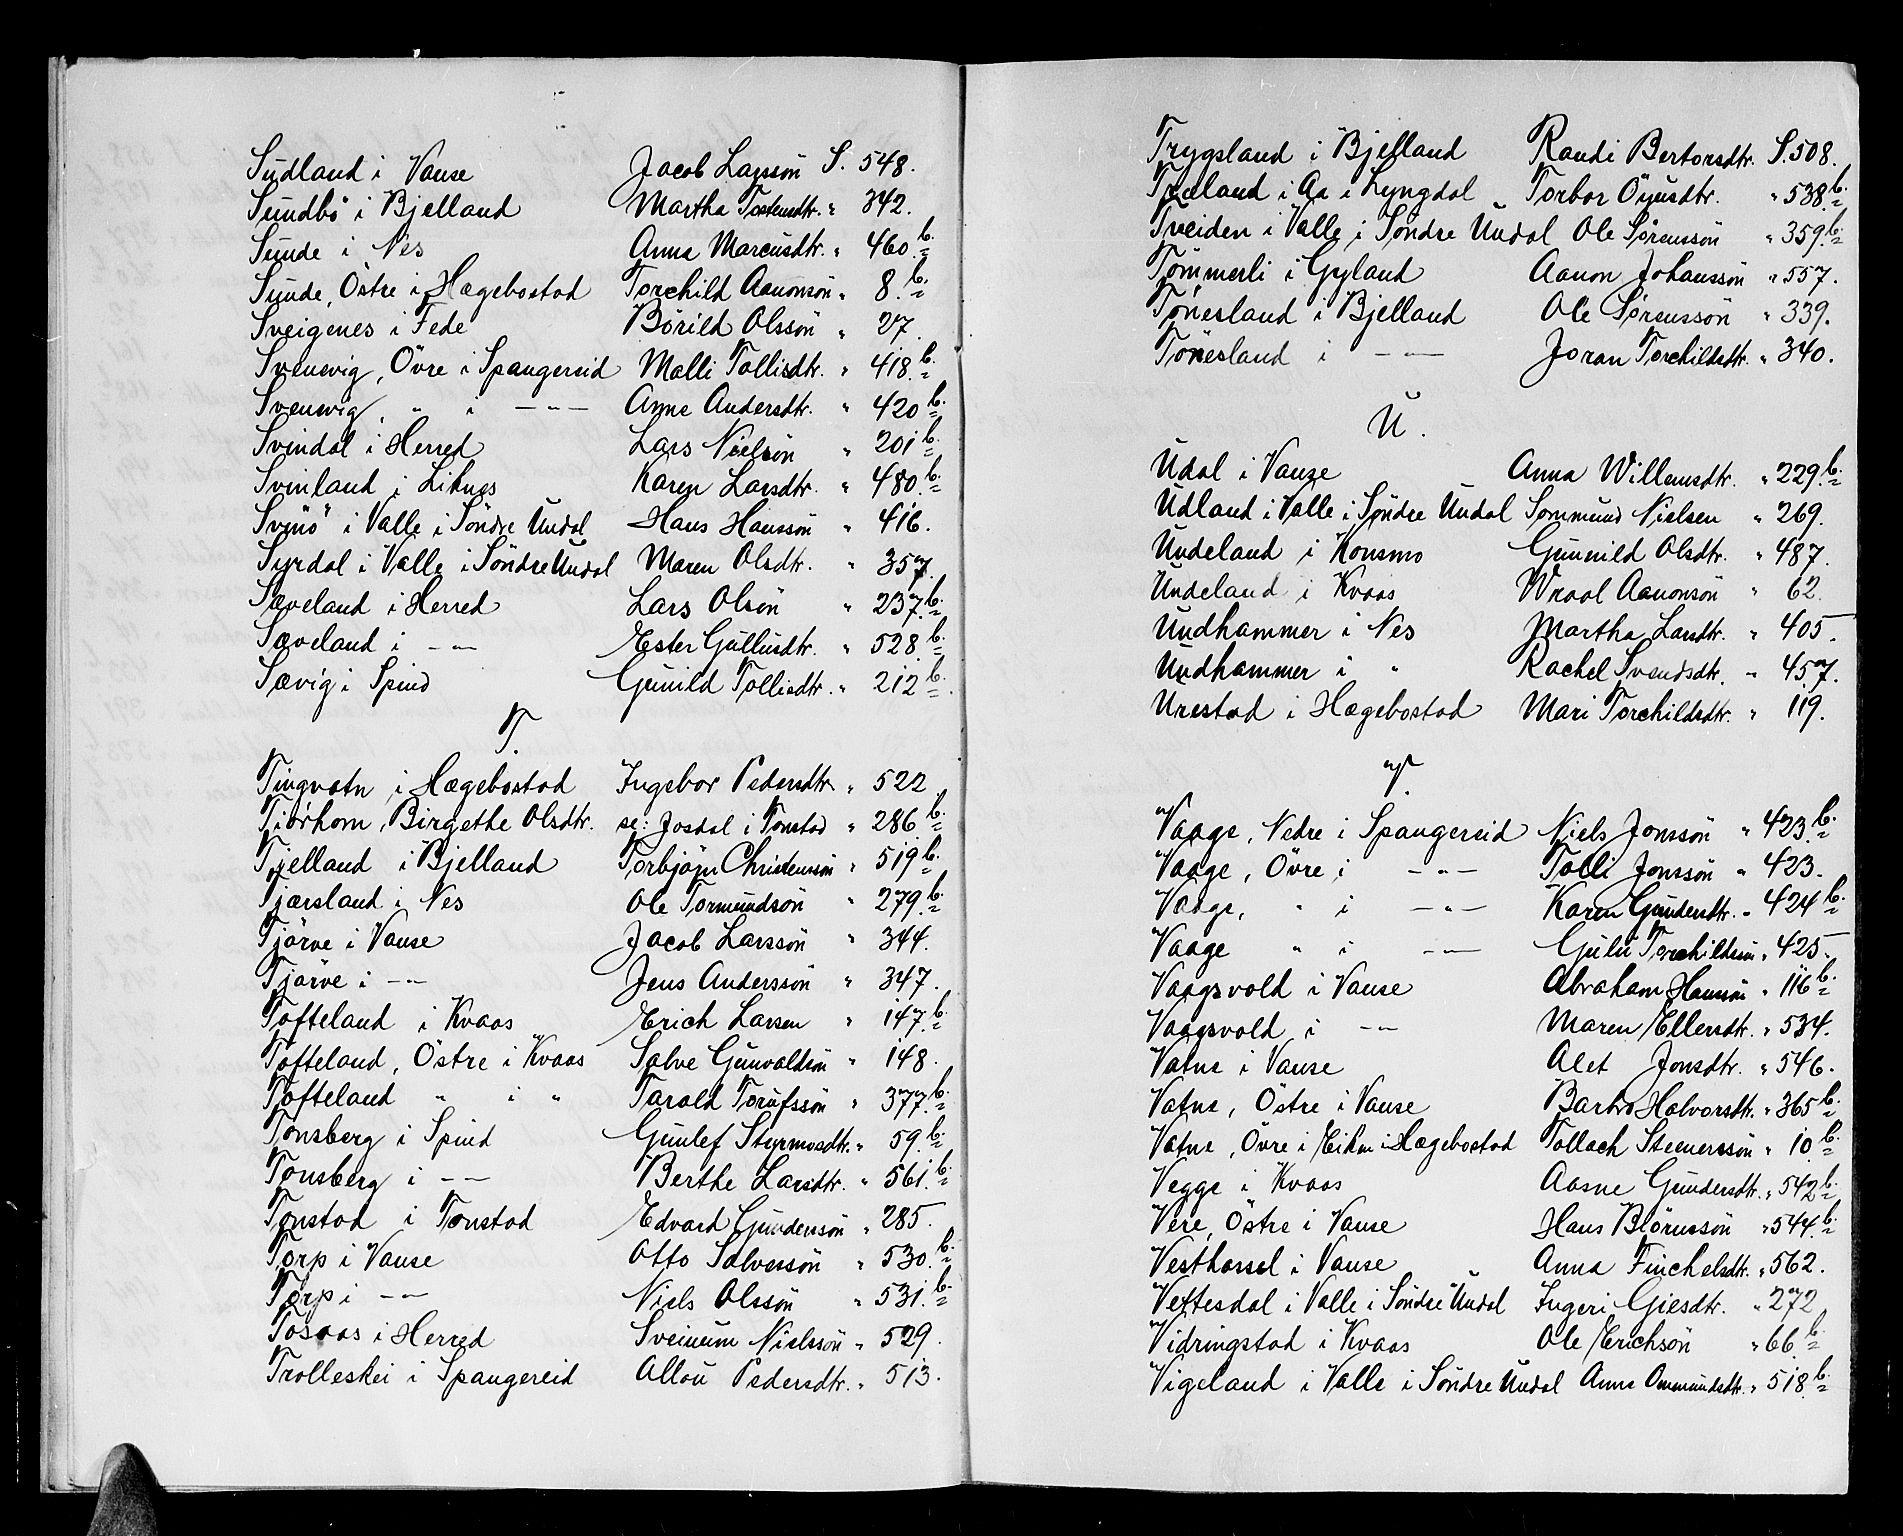 Sudland i Vanse Jacob Larsson S. 548.
Sundbö i Bjelland Martha Tostensdtr. " 342.
Sunde i Nes Anna Marcusdtr. " 460.b.
Sunde, Östre i Hægebostad Torchild Aanonsön " 8.b.
Sveigenes i Fede Börild Olssön " 27.
Svenevig, Övre i Spangereid Malli Tollisdtr. " 418.b.
Svenevig, " i -"- Anne Andersdtr. " 420.b.
Svindal i Herred Lars Nielsön " 201.b.
Svinland i Liknes Karen Larsdtr. " 480.b.
Svinö i Valle i Söndre Undal Hans Hanssön " 416.
Syrdal i Valle i Söndre Undal Maren Olsdtr. " 357.
Sæveland i Herred Lars Olsön " 237.b.
Sæveland i -"- Ester Gullusdtr. " 528.b.
Sævig i Spind Gunild Tollisdtr. " 212.b.
T.
Tingvatn i Hægebostad Ingebor Pedersdtr. " 522
Tjörhom, Birgethe Olsdtr. se: Josdal i Tonstad " 286.b.
Tjelland i Bjelland Torbjörn Christensön " 519.b.
Tjærsland i Nes Ole Tormundsön " 279.b.
Tjörve i Vanse Jacob Larssön " 344.
Tjörve i -"- Jens Anderssön " 347.
Tofteland i Kvaas Erich Larsen " 147.b.
Tofteland, Östre i Kvaas Salve Gunvaldsön " 148.
Tofteland " i " Tarald Torufssön " 377.b.
Tonsberg i Spind Gunlef Styrmosdtr. " 59.b.
Tonsberg i -"- Berthe Larsdtr. " 561.b.
Tonstad i Tonstad Edvard Gundersön " 285.
Torp i Vanse Otto Salvessön " 530.b.
Torp i -"- Niels Olssön " 531.b.
Tosaas i Herred Sveinum Nielssön " 529.
Trolleskei i Spangereid Allou Pedersdtr. " 513.
Trygsland i Bjelland Randi Bertorsdtr. S. 508.
Træland i Aa i Lyngdal Torbor Öyusdtr. " 538.b.
Tveiden i Valle i Söndre Undal Ole Sörenssön " 359.b.
Tömmerli i Gyland Aanon Johanssön " 557.
Tönesland i Bjelland Ole Sörenssön " 339.
Tönesland i -"- Joran Torchildsdtr. " 340.
U.
Udal i Vanse Anna Willemsdtr. " 229.b.
Udland i Valle i Söndre Undal Sommund Nielsen " 269.
Undeland i Konsmo Gunnild Olsdtr. " 487.
Undeland i Kvaas Wraal Aanonsön " 62.
Undhammer i Nes Martha Larsdtr. " 405.
Undhammer i " Rachel Svendsdtr. " 457.
Urestad i Hægebostad Mari Torchildsdtr. " 119.
V.
Vaage, Nedre i Spangereid Niels Jonssön " 423.b.
Vaage, Övre i -"- Tolli Jonssön " 423.
Vaage, " i -"- Karen Gundersdtr. " 424.b.
Vaage " i -"- Gulu Torchildsön " 425.
Vaagsvold i Vanse Abraham Hanssön " 116.b.
Vaagsvold i -"- Maren Ellersdtr. " 534.
Vatne i Vanse Alet Jonsdtr. " 546.
Vatne, Östre i Vanse Barbro Halvorsdtr. " 365.b.
Vatne, Övre i Eiken i Hægebostad Tollach Steenerssön " 10.b.
Vegge i Kvaas Aasne Gundersdtr. " 542.b.
Vere, Östre i Vanse Hans Biörnssön " 544.b.
Vesthassel i Vanse Anna Finchelsdtr. " 562.
Vettesdal i Valle i Söndre Undal Ingeri Giesdtr. " 272
Vidringstad i Kvaas Ole Erichsön " 66.b.
Vigeland i Valle i Söndre Undal Anne Ommundsdtr. " 518.b.